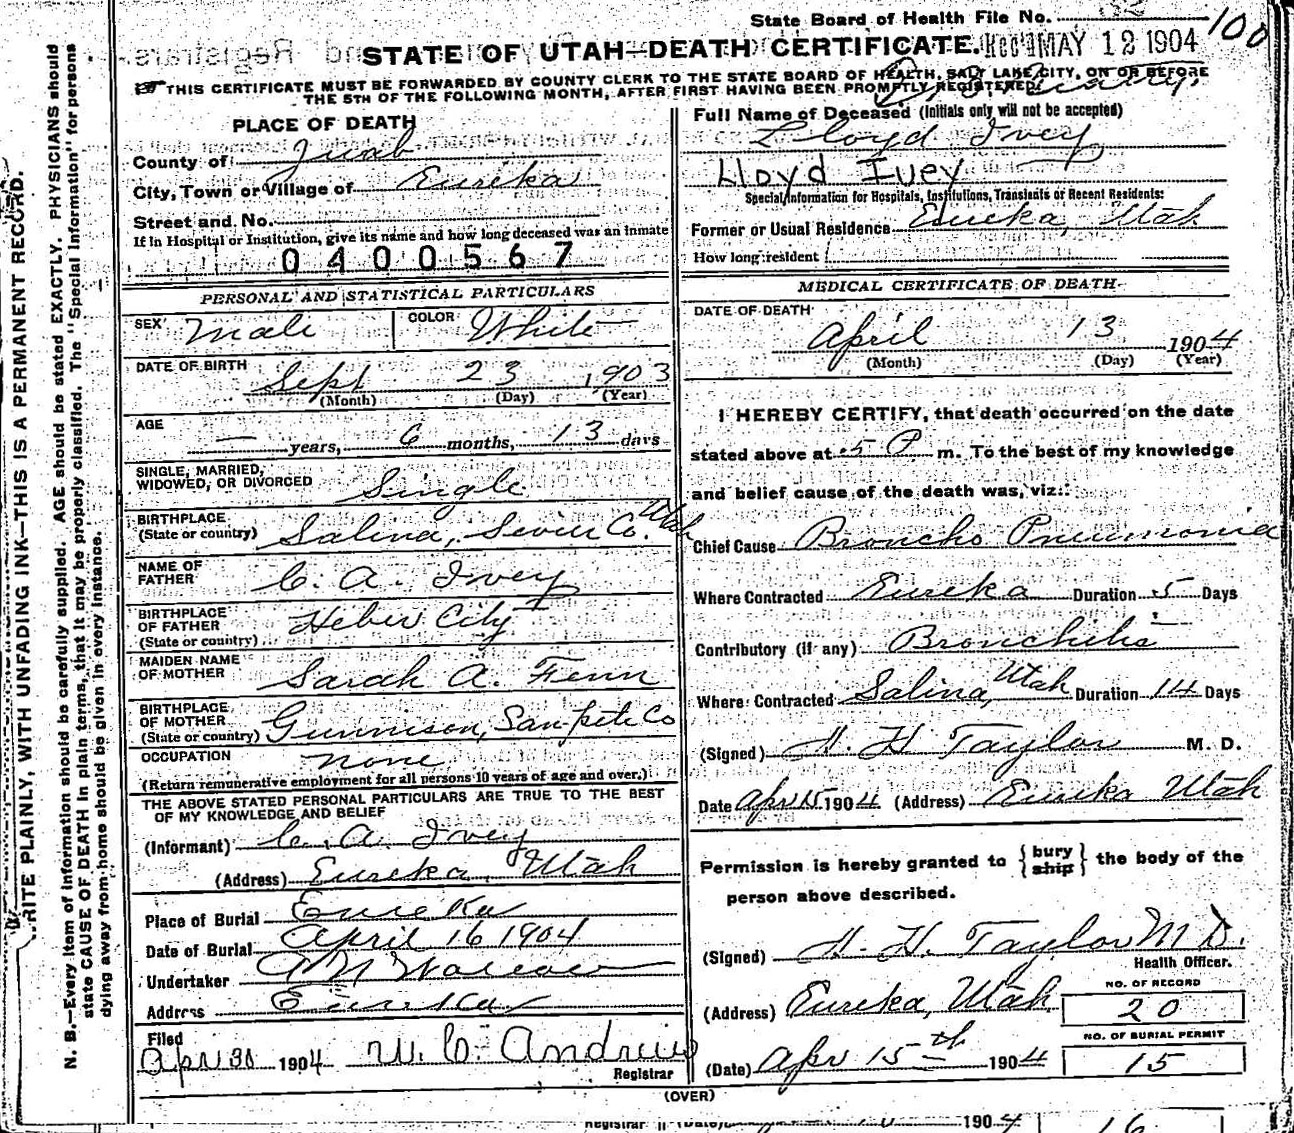 State Board of Health File No. 100
STATE OF UTAH—DEATH CERTIFICATE. Rec'd MAY 12 1904
THIS CERTIFICATE MUST BE FORWARDED BY COUNTY CLERK TO THE STATE BOARD OF HEALTH, SALT LAKE CITY, ON OR BEFORE
THE 5TH OF THE FOLLOWING MONTH, AFTER FIRST HAVING BEEN PROMPTLY REGISTERED.
WRITE PLAINLY, WITH UNFADING INK—THIS IS A PERMANENT RECORD.
N. B.—Every item of information should be carefully supplied. AGE should be stated EXACTLY. PHYSICIANS should
state CAUSE OF DEATH in plain terms, that it may be properly classified. The "Special Information" for persons
dying away from home should be given in every instance.
PLACE OF DEATH
County of Juab
City, Town or Village of Eureka
Street and No.
If in Hospital or Institution, give its name and how long deceased was an inmate
0400567
PERSONAL AND STATISTICAL PARTICULARS
SEX Male COLOR White
DATE OF BIRTH Sept 23 1903
(Month) (Day) (Year)
AGE — years, 6 months, 13 days
SINGLE, MARRIED,
WIDOWED, OR DIVORCED Single
BIRTHPLACE
(State or country) Salina, Sevier Co. Utah
NAME OF
FATHER C. A. Ivey
BIRTHPLACE
OF FATHER
(State or country) Heber City
MAIDEN NAME
OF MOTHER Sarah A. Fenn
BIRTHPLACE
OF MOTHER
(State or country) Gunnison, Sanpete Co
OCCUPATION none
(Return remunerative employment for all persons 10 years of age and over.)
THE ABOVE STATED PERSONAL PARTICULARS ARE TRUE TO THE BEST
OF MY KNOWLEDGE AND BELIEF
(Informant) C. A. Ivey
(Address) Eureka, Utah
Place of Burial Eureka
Date of Burial April 16 1904
Undertaker
Address Eureka
Filed
Apr 30 1904 W. C. Andrews
Registrar
Full Name of Deceased (Initials only will not be accepted)
Lloyd Ivey
Lloyd Ivey
Special Information for Hospitals, Institutions, Transients or Recent Residents:
Former or Usual Residence Eureka, Utah
How long resident
MEDICAL CERTIFICATE OF DEATH
DATE OF DEATH
April 13 1904
(Month) (Day) (Year)
I HEREBY CERTIFY, that death occurred on the date
stated above at 5 P m. To the best of my knowledge
and belief cause of the death was, viz:
Chief Cause Broncho Pneumonia
Where Contracted Eureka Duration 5 Days
Contributory (if any) Bronchitis
Where Contracted Salina, Utah Duration 14 Days
(Signed) H. H. Taylor M. D.
Date Apr 15 1904 (Address) Eureka Utah
Permission is hereby granted to {bury ship} the body of the
person above described.
(Signed) H. H. Taylor M D.
Health Officer.
(Address) Eureka, Utah.
NO. OF RECORD
20
NO. OF BURIAL PERMIT
15
(Date) Apr 15th 1904
(OVER)
Registrar (Date) 1904 16